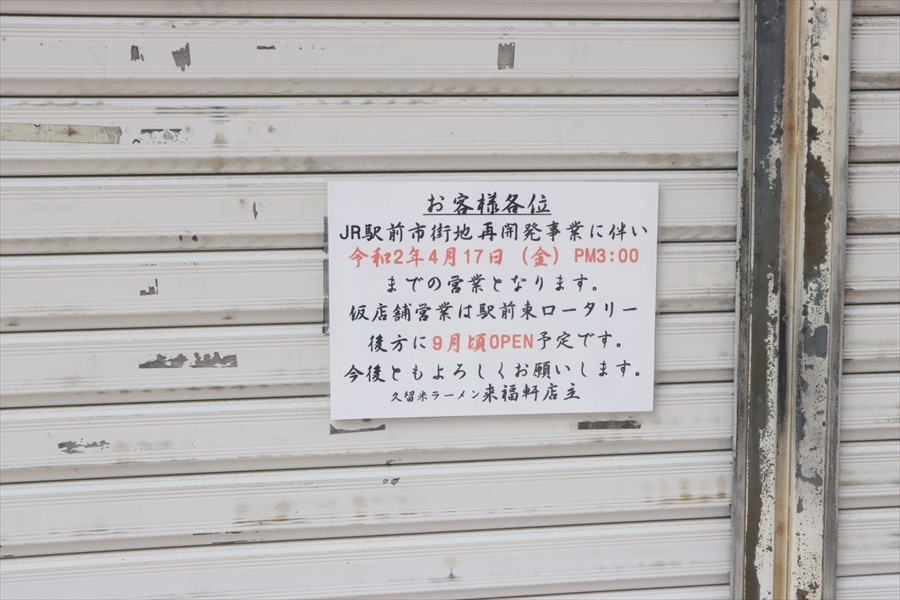 お客様各位
JR駅前市街地再開発事業に伴い
令和2年4月17日（金）PM3:00
までの営業となります。
仮店舗営業は駅前東ロータリー
後方に9月頃OPEN予定です。
今後ともよろしくお願いします。
久留米ラーメン来福軒店主